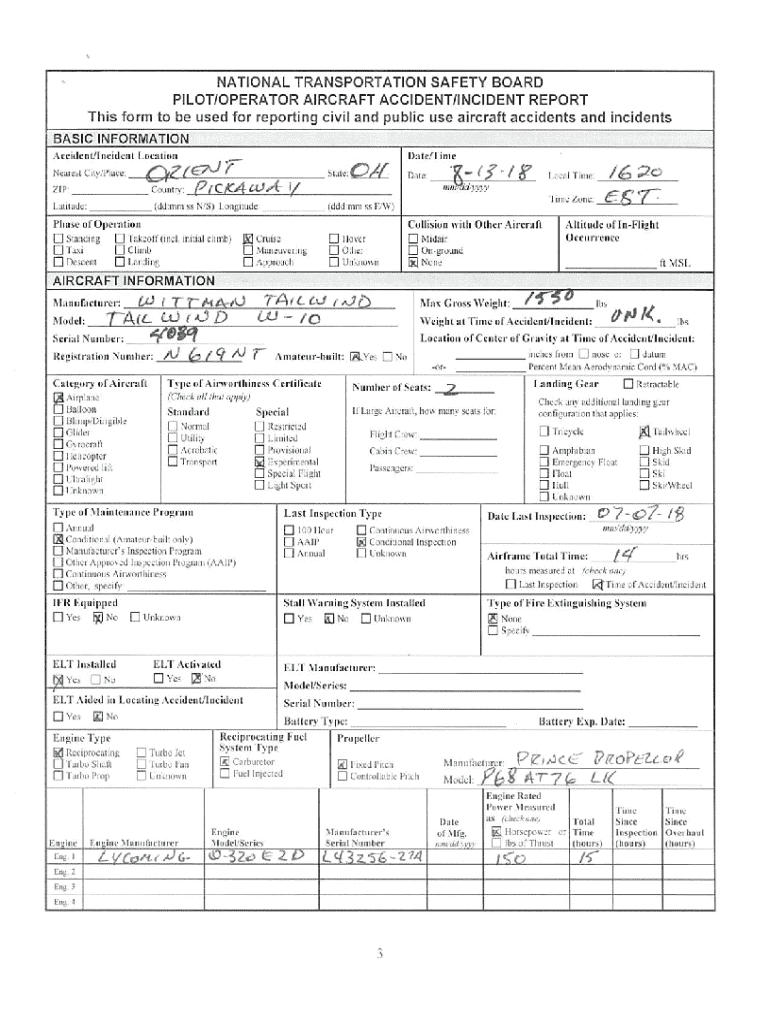 NATIONAL TRANSPORTATION SAFETY BOARD
PILOT/OPERATOR AIRCRAFT ACCIDENT/INCIDENT REPORT
This form to be used for reporting civil and public use aircraft accidents and incidents
BASIC INFORMATION
Accident/Incident Location
Nearest City/Place: ORIENT State: OH
ZIP: Country: PICKAWAY
Latitude: (dd:mm:ss N/S) Longitude: (ddd:mm:ss E/W)
Date/Time
Date: 8-13-18 Local Time: 1620
mm/dd/yyyy
Time Zone: EST.
Phase of Operation
Standing Takeoff (incl. initial climb) Cruise Hover
Taxi Climb Maneuvering Other
Descent Landing Approach Unknown
Collision with Other Aircraft
Midair
On-ground
None
Altitude of In-Flight
Occurrence
ft MSL
AIRCRAFT INFORMATION
Manufacturer: WITTMAN TAILWIND
Model: TAILWIND W-10
Serial Number:
Registration Number: N619NT Amateur-built: Yes No
Max Gross Weight: 1550 lbs
Weight at Time of Accident/Incident: UNK. lbs
Location of Center of Gravity at Time of Accident/Incident:
inches from nose or datum
-or- Percent Mean Aerodynamic Cord (% MAC)
Category of Aircraft
Airplane
Balloon
Blimp/Dirigible
Glider
Gyrocraft
Helicopter
Powered lift
Ultralight
Unknown
Type of Airworthiness Certificate
(Check all that apply)
Standard Special
Normal Restricted
Utility Limited
Acrobatic Provisional
Transport Experimental
Special Flight
Light Sport
Number of Seats: 2
If Large Aircraft, how many seats for:
Flight Crew:
Cabin Crew:
Passengers:
Landing Gear Retractable
Check any additional landing gear
configuration that applies:
Tricycle Tailwheel
Amphibian High Skid
Emergency Float Skid
Float Ski
Hull Ski/Wheel
Unknown
Type of Maintenance Program
Annual
Conditional (Amateur-built only)
Manufacturer's Inspection Program
Other Approved Inspection Program (AAIP)
Continuous Airworthiness
Other, specify:
Last Inspection Type
100 Hour Continuous Airworthiness
AAIP Conditional Inspection
Annual Unknown
Date Last Inspection: 07-07-18
mm/dd/yyyy
Airframe Total Time: 14 hrs
hours measured at (check one)
Last Inspection Time of Accident/Incident
IFR Equipped
Yes No Unknown
Stall Warning System Installed
Yes No Unknown
Type of Fire Extinguishing System
None
Specify
ELT Installed ELT Activated
Yes No Yes No
ELT Aided in Locating Accident/Incident
Yes No
ELT Manufacturer:
Model/Series:
Serial Number:
Battery Type: Battery Exp. Date:
Engine Type
Reciprocating Turbo Jet
Turbo Shaft Turbo Fan
Turbo Prop Unknown
Reciprocating Fuel
System Type
Carburetor
Fuel Injected
Propeller
Fixed Pitch
Controllable Pitch
Manufacturer: PRINCE PROPELLOR
Model: P68 AT76 LK
Engine Engine Manufacturer
Engine
Model/Series
Manufacturer's
Serial Number
Date
of Mfg.
mm/dd/yyyy
Engine Rated
Power Measured
as (check one)
Horsepower or
lbs of Thrust
Total
Time
(hours)
Time
Since
Inspection
(hours)
Time
Since
Overhaul
(hours)
Eng. 1 LYCOMING O-320 E2D L43256-27A 150 15
Eng. 2
Eng. 3
Eng. 4
3